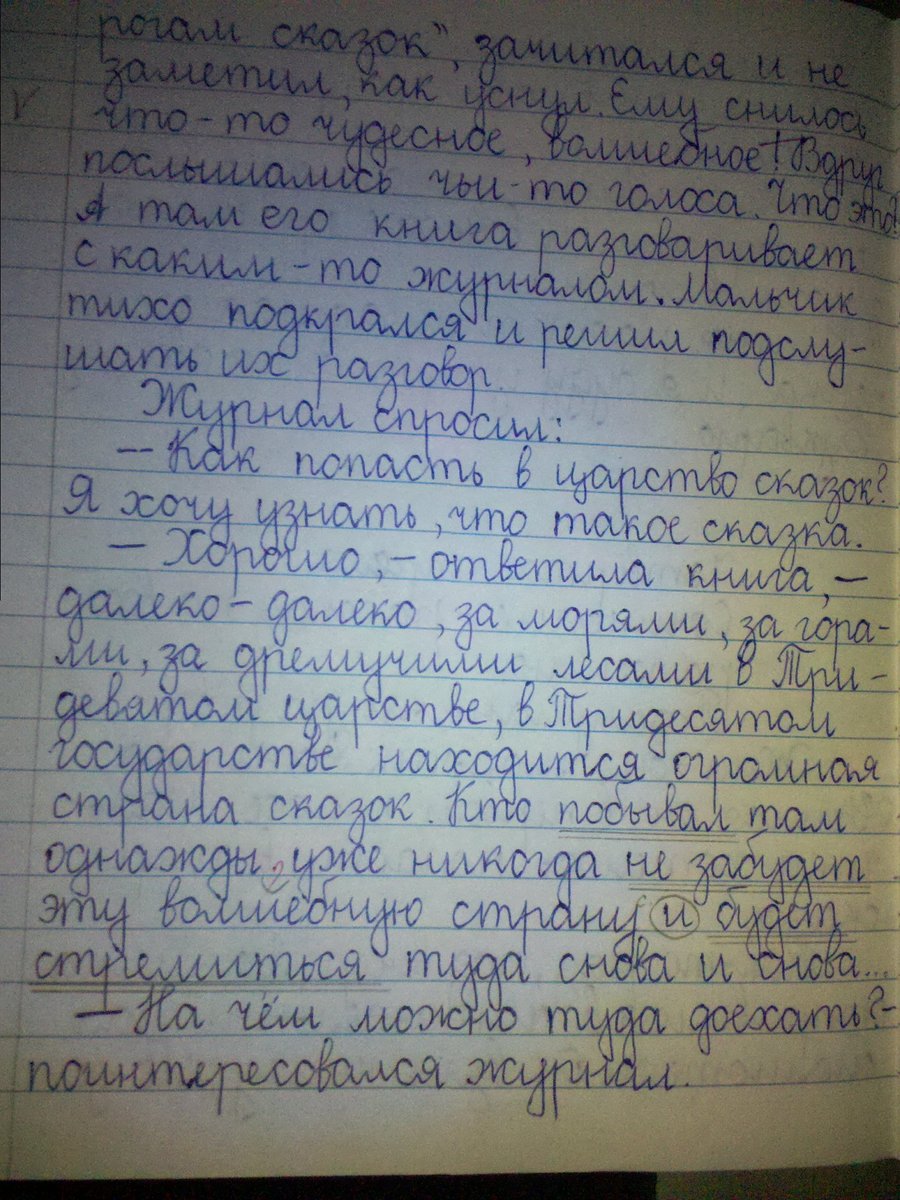 рогам сказок", зачитался и не
заметил, как уснул. Ему снилось
что-то чудесное, волшебное! Вдруг
послышались чьи-то голоса. Что это?
А там его книга разговаривает
с каким-то журналом. Мальчик
тихо подкрался и решил подслу-
шать их разговор.
Журнал спросил:
— Как попасть в царство сказок?
Я хочу узнать, что такое сказка.
— Хорошо, — ответила книга, —
далеко-далеко, за морями, за гора-
ми, за дремучими лесами в Три-
девятом царстве, в Тридесятом
государстве находится огромная
страна сказок. Кто побывал там
однажды, уже никогда не забудет
эту волшебную страну и будет
стремиться туда снова и снова...
— На чём можно туда доехать? -
поинтересовался журнал.